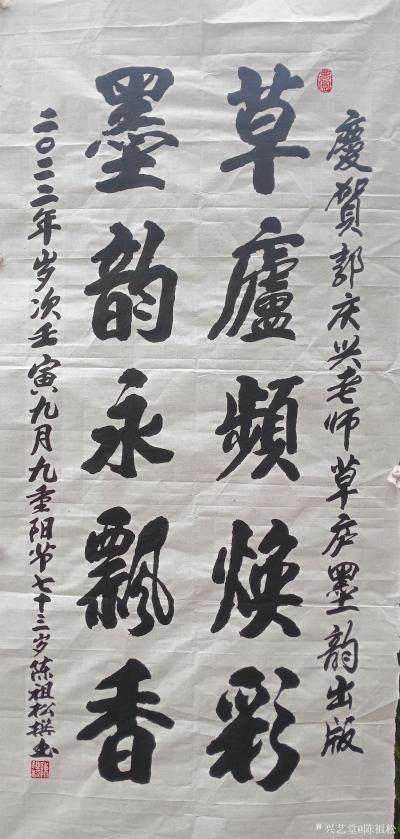 慶賀郭庆兴老师草庐墨韵出版
草廬頻焕彩
墨韵永飘香
二〇二二年岁次壬寅九月九重阳节七十三岁陈祖松撰书
兴艺堂@陈祖松